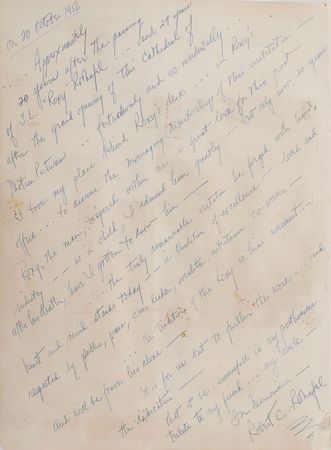 On 20 October 1956
Approximately
20 years after the passing
of S.L. "Roxy" Rothafel ... and 29 years
after the grand opening of this Cathedral of
Motion Pictures ... fortuitously and co-incidentally ...
I took my place behind Roxy's desk ... in Roxy's
office ... to assume the Managing Directorship of this institution —
Roxy, the man, inspired within me a great love for this great
industry — as a child, I admired him greatly — but only now, 20 years
after his death, have I gotten to know him —
the truly remarkable institution he forged with hand,
heart and mind stands today — a tradition of excellence — loved and
respected by public, press, civic leader, socialite, entertainer, co-worker —
and will be forever his alone — the tradition of the Roxy is his monument —
it is for us but to further the work ... and
the dedication —
that it be successful is my posthumous
tribute to my friend ... my uncle —
In Memoriam —
Robert C. Rothafel